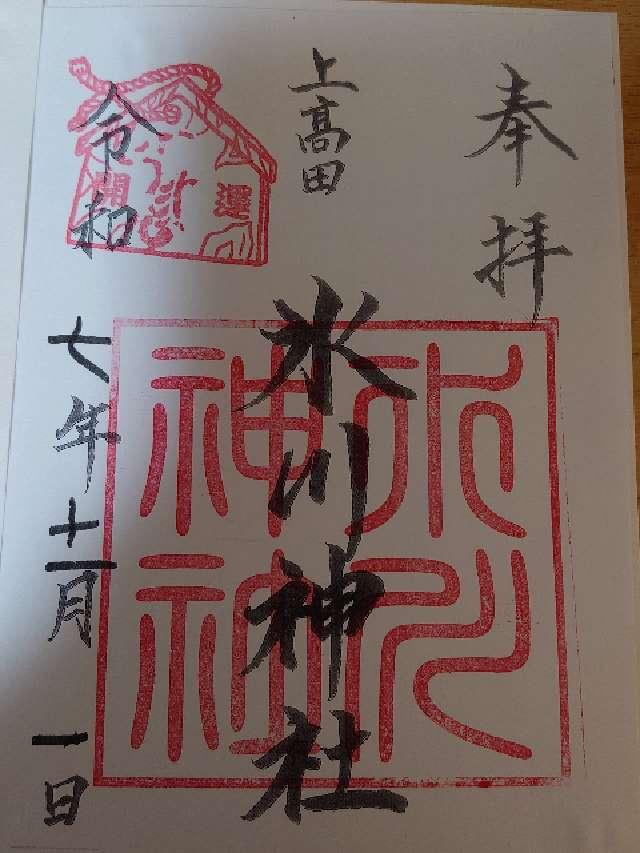 奉拝
上高田
氷川神社
令和七年十一月一日
開運
氷川
神社